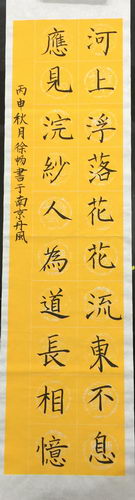 河上浮落花花流東不息
應見浣紗人為道長相憶
丙申秋月徐暢書于南京丹鳳